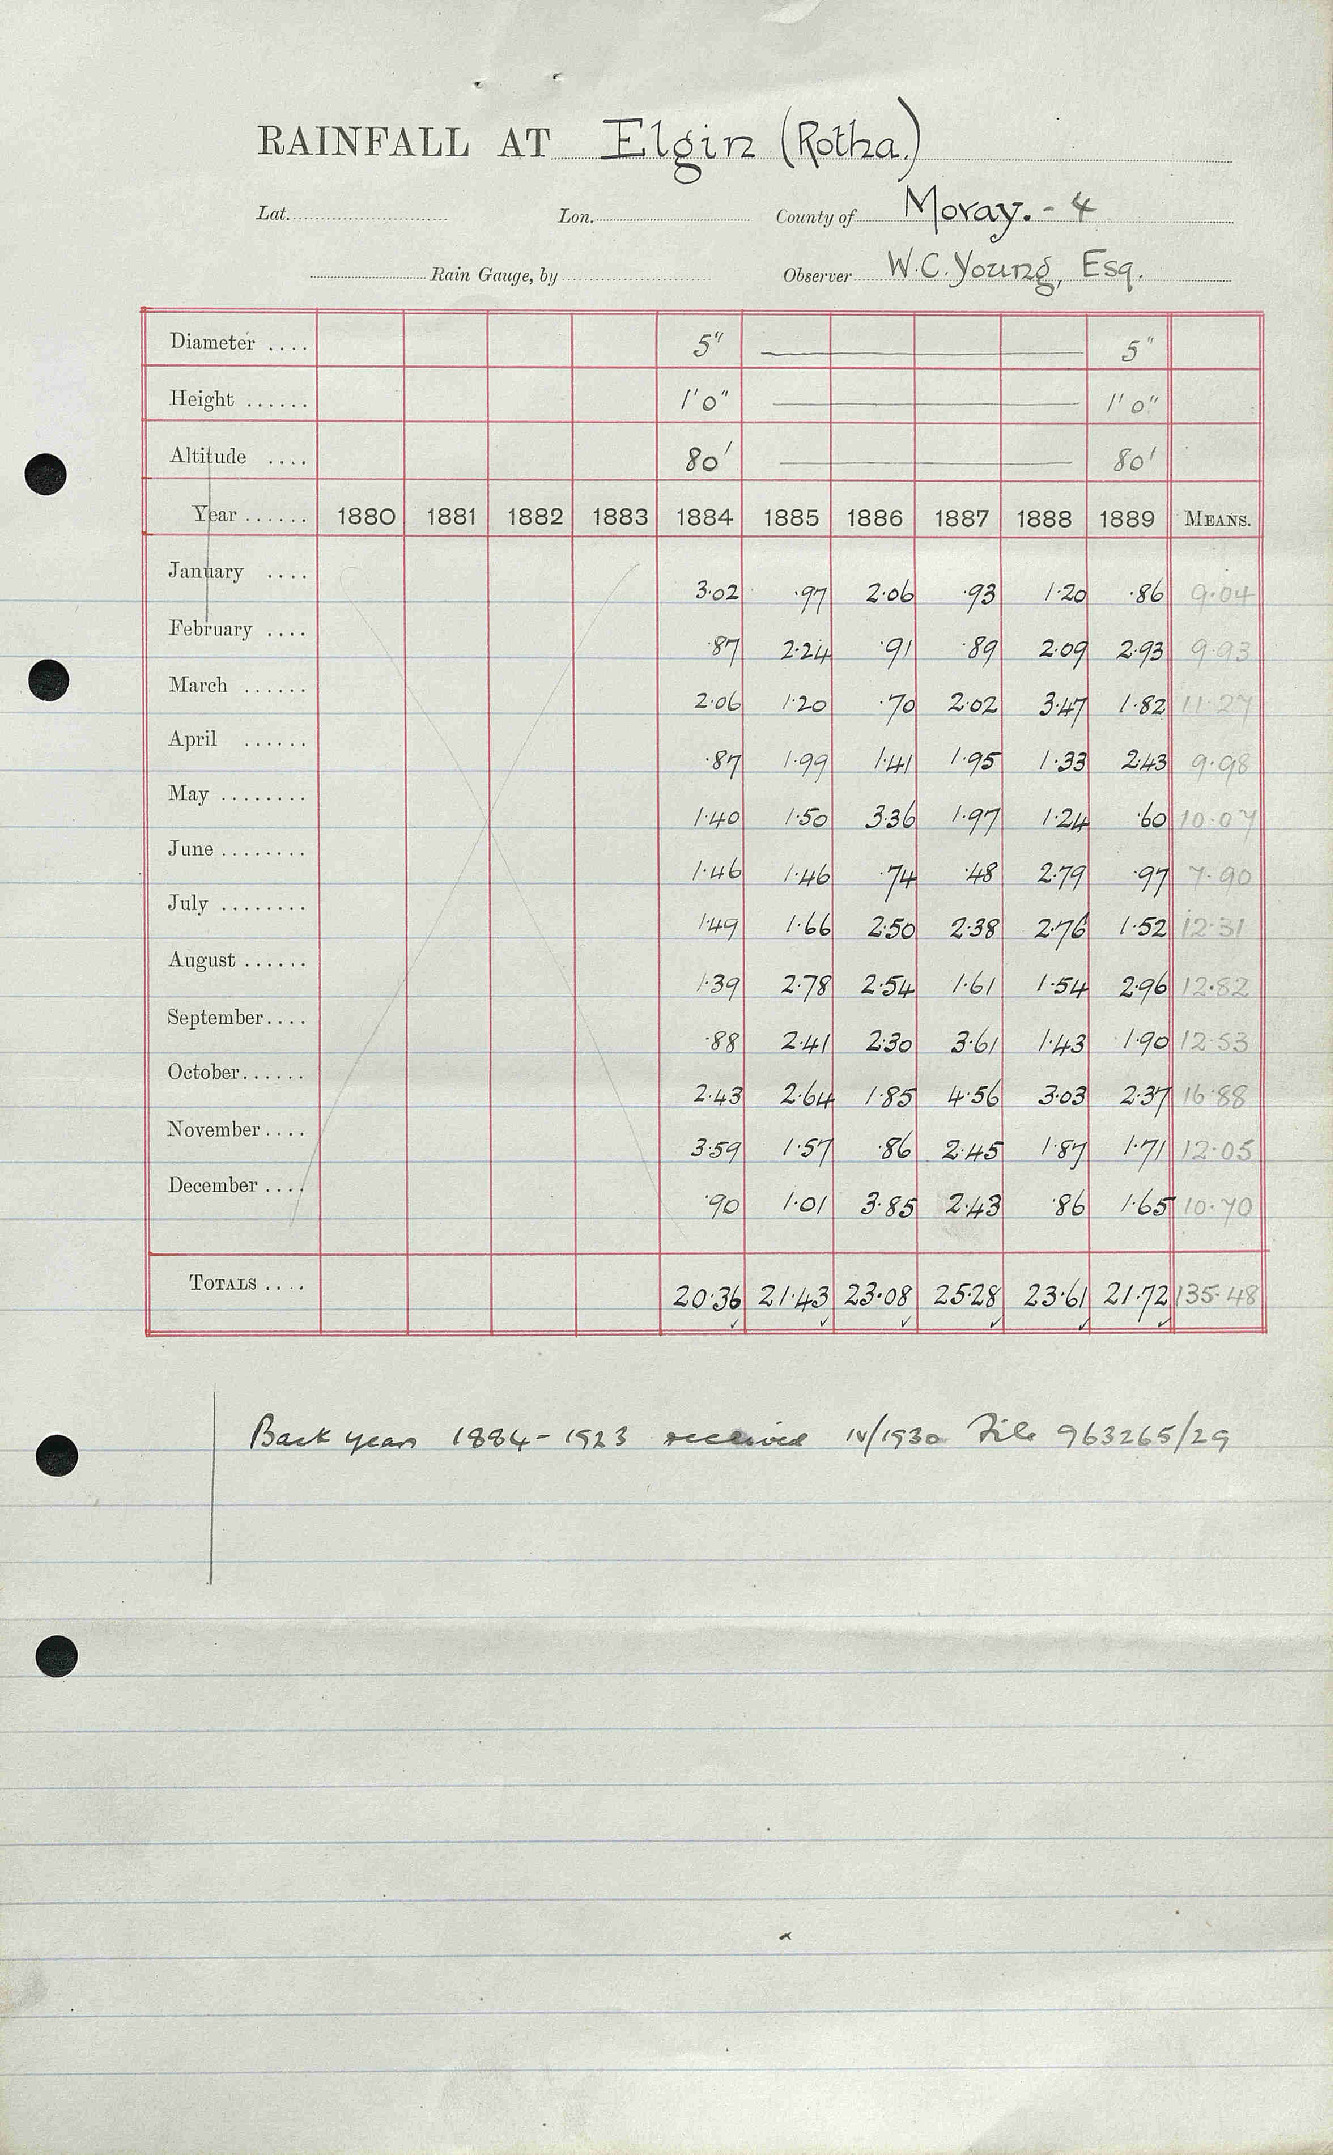 RAINFALL AT Elgin (Rotha.)
Lat. Lon. County of Moray. - 4
Rain Gauge, by Observer W.C. Young, Esq.
Diameter .... 5" 5"
Height ...... 1'0" 1'0"
Altitude .... 80' 80'
Year ...... 1880 1881 1882 1883 1884 1885 1886 1887 1888 1889 MEANS.
January .... 3.02 .97 2.06 .93 1.20 .86 9.04
February .... .87 2.24 .91 .89 2.09 2.93 9.93
March ...... 2.06 1.20 .70 2.02 3.47 1.82 11.27
April ...... .87 1.99 1.41 1.95 1.33 2.43 9.98
May ........ 1.40 1.50 3.36 1.97 1.24 .60 10.07
June ........ 1.46 1.46 .74 .48 2.79 .97 7.90
July ........ 1.49 1.66 2.50 2.38 2.76 1.52 12.31
August ...... 1.39 2.78 2.54 1.61 1.54 2.96 12.82
September.... .88 2.41 2.30 3.61 1.43 1.90 12.53
October...... 2.43 2.64 1.85 4.56 3.03 2.37 16.88
November.... 3.59 1.57 .86 2.45 1.87 1.71 12.05
December .... .90 1.01 3.85 2.43 .86 1.65 10.70
TOTALS .... 20.36 21.43 23.08 25.28 23.61 21.72 135.48
Back years 1884-1923 received IV/1930 File 963265/29